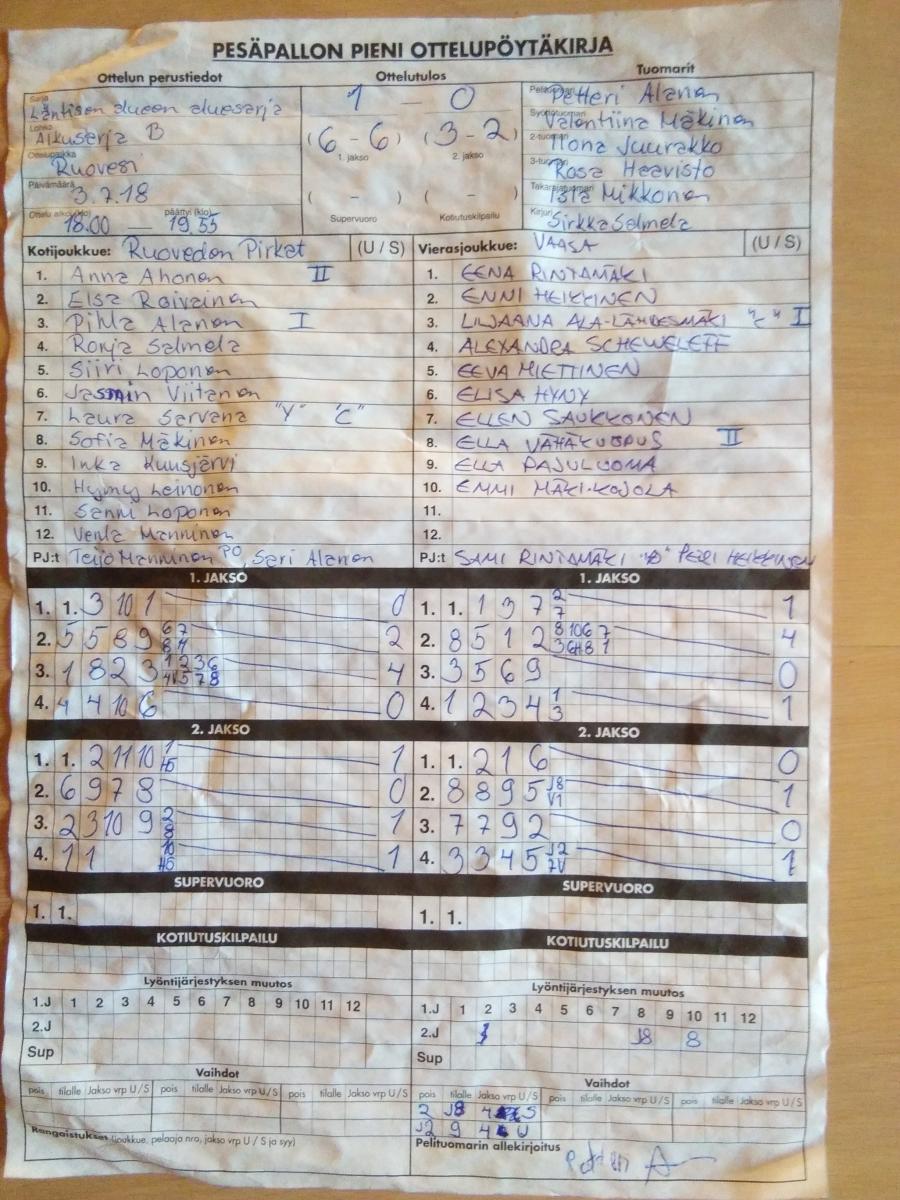 PESÄPALLON PIENI OTTELUPÖYTÄKIRJA
Ottelun perustiedot Ottelutulos Tuomarit
Sarja Läntisen alueen aluesarja
Lohko Aikuisarja B
Ottelupaikka Ruovesi
Päivämäärä 3.7.18
Ottelu alkoi (klo) 18.00 — päättyi (klo) 19.55
1 - 0
(6 - 6) (3 - 2)
1. jakso 2. jakso
( - ) ( - )
Supervuoro Kotiutuskilpailu
Pelituomari Petteri Alanen
Syöttötuomari Valentiina Mäkinen
2-tuomari Ilona Juurakko
3-tuomari Rosa Haavisto
Takarajatuomari Isla Mikkonen
Kirjuri Sirkka Salmela
Kotijoukkue: Ruoveden Pirkat (U / S)
1. Anna Ahonen II
2. Elsa Roivainen
3. Pihla Alanen I
4. Ronja Salmela
5. Siiri Loponen
6. Jasmin Viitanen
7. Laura Sarvana "V" "C"
8. Sofia Mäkinen
9. Inka Kuusjärvi
10. Hymy Leinonen
11. Sanni Loponen
12. Venla Manninen
PJ:t Teijo Manninen PO, Sari Alanen
Vierasjoukkue: VAASA (U / S)
1. EENA RINTAMÄKI
2. ENNI HEIKKINEN
3. LILJAANA ALA-LÄHDESMÄKI "C" I
4. ALEXANDRA SCHEWELEFF
5. EEVA MIETTINEN
6. ELISA HYNY
7. ELLEN SAUKKONEN
8. ELLA VÄHÄKUOPUS II
9. ELLA PAJULUOMA
10. EMMI MÄKI-KOJOLA
11.
12.
PJ:t SAMI RINTAMÄKI PETRI HEIKKINEN
1. JAKSO
1. 1. 3 10 1 0
2. 5 5 8 9 6 7 8 4 2
3. 1 8 2 3 1 2 3 6 4 5 7 8 4
4. 4 4 10 6 0
2. JAKSO
1. 1. 2 11 10 1 1
2. 6 9 7 8 0
3. 2 3 10 9 2 8 1
4. 1 1 10 1
SUPERVUORO
1. 1.
KOTIUTUSKILPAILU
1. JAKSO
1. 1. 1 3 7 2 7 1
2. 8 5 1 2 8 10 6 7 4
3. 3 5 6 9 0
4. 1 2 3 4 1 3 1
2. JAKSO
1. 1. 2 1 6 0
2. 8 8 9 5 J8 V1 1
3. 7 7 9 2 0
4. 3 3 4 5 J2 7V 1
SUPERVUORO
1. 1.
KOTIUTUSKILPAILU
Lyöntijärjestyksen muutos
1.J 1 2 3 4 5 6 7 8 9 10 11 12
2.J
Sup
Vaihdot
pois tilalle Jakso vrp U / S pois tilalle Jakso vrp U / S pois tilalle Jakso vrp U / S
Rangaistukset (joukkue, pelaaja nro, jakso vrp U / S ja syy)
Lyöntijärjestyksen muutos
1.J 1 2 3 4 5 6 7 8 9 10 11 12
2.J J8 8
Sup
Vaihdot
pois tilalle Jakso vrp U / S pois tilalle Jakso vrp U / S pois tilalle Jakso vrp U / S
2 J8 4 S
J2 9 4 U
Pelituomarin allekirjoitus